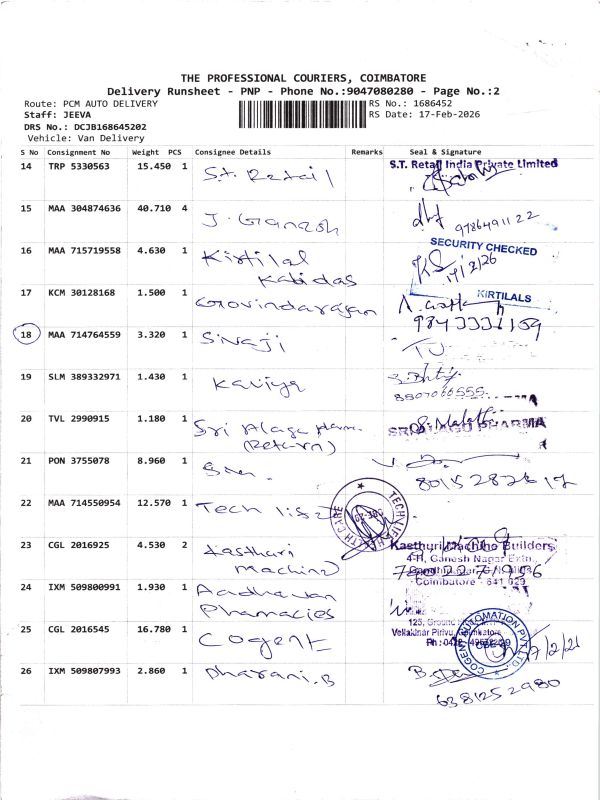 THE PROFESSIONAL COURIERS, COIMBATORE
Delivery Runsheet - PNP - Phone No.:9047080280 - Page No.:2
Route: PCM AUTO DELIVERY
Staff: JEEVA
DRS No.: DCJB168645202
Vehicle: Van Delivery
RS No.: 1686452
RS Date: 17-Feb-2026
S No Consignment No Weight PCS Consignee Details Remarks Seal & Signature
14 TRP 5330563 15.450 1 S.T. Retail S.T. Retail India Private Limited
15 MAA 304874636 40.710 4 J. Ganesh 9786491122
16 MAA 715719558 4.630 1 Kirtilal Kalidas SECURITY CHECKED 17/2/26 KIRTILALS
17 KCM 30128168 1.500 1 Govindarajan
18 MAA 714764559 3.320 1 Sivaji
19 SLM 389332971 1.430 1 Kaviya 8807066555
20 TVL 2990915 1.180 1 Sri Alaga (Return) PHARMA
21 PON 3755078 8.960 1
22 MAA 714550954 12.570 1 Tech HEALTH CARE
23 CGL 2016925 4.530 2 Kasthuri Machine Kasthuri Machine Builders
4-H, Ganesh Nagar Extn.
Coimbatore - 641 029
24 IXM 509800991 1.930 1 Aadhavan Pharmacies
125, Ground
Vellakinar Pirivu, Coimbatore
25 CGL 2016545 16.780 1 Cogent COGENT AUTOMATION PVT LTD
26 IXM 509807993 2.860 1 Dharani.B 6381252980